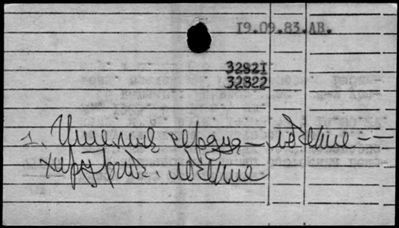 19.09.83.АВ.
32821
32822
1. Ишемия сердца — лечение —
хирургич. лечение